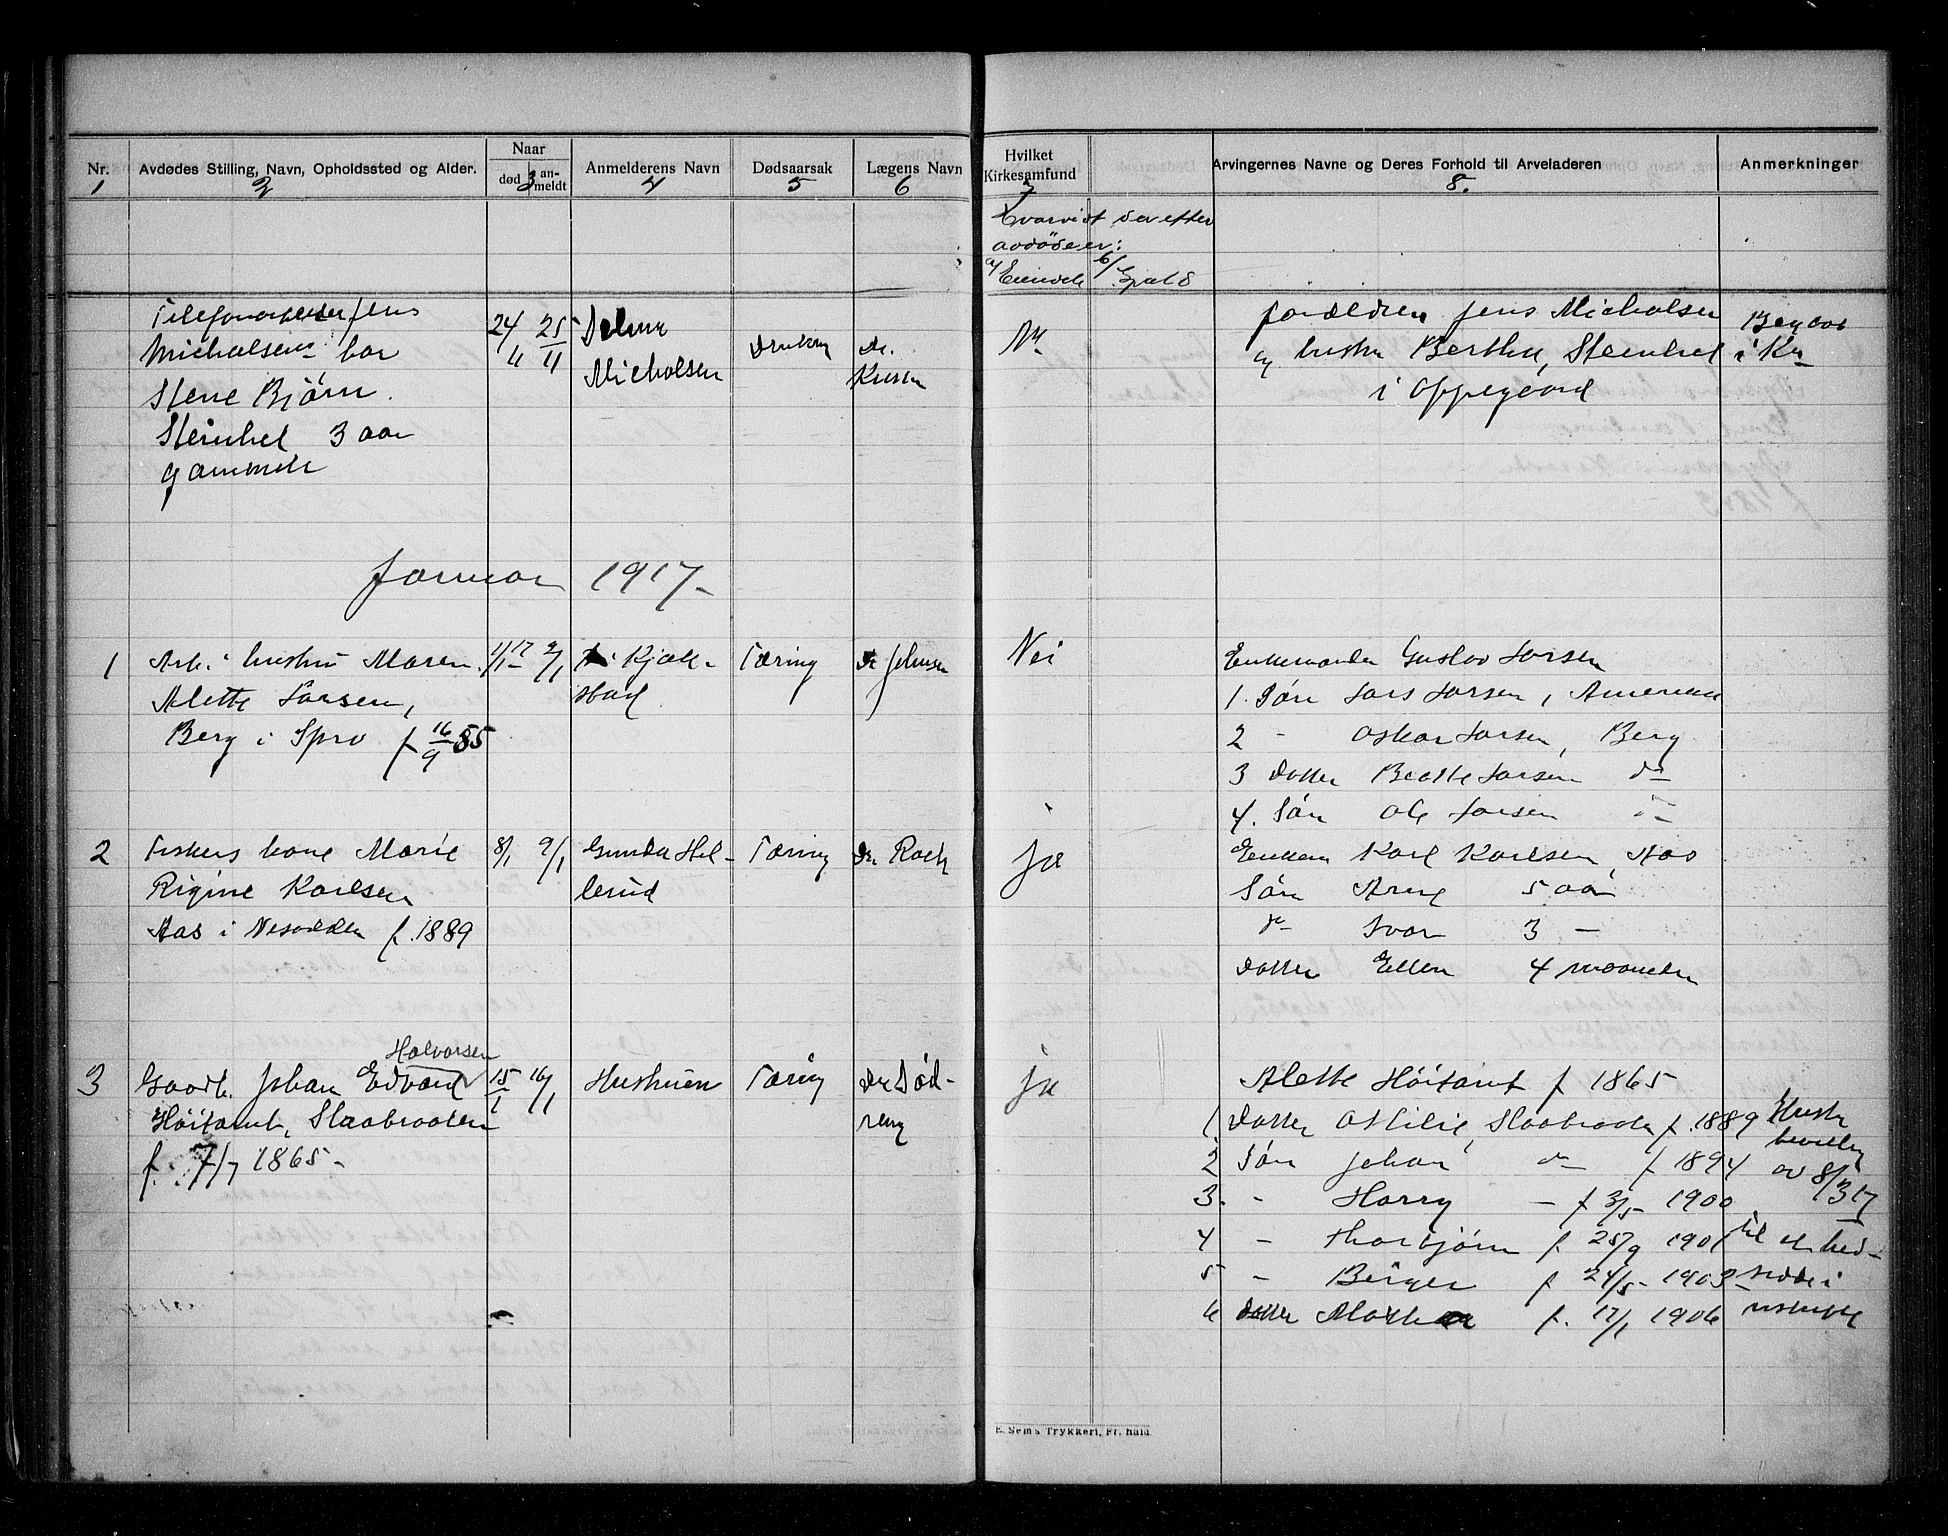 Nr. Avdødes Stilling, Navn, Opholdssted og Alder. Naar død anmeldt Anmelderens Navn Dødsaarsak Lægens Navn Hvilket Kirkesamfund Arvingernes Navne og Deres Forhold til Arveladeren Anmerkninger
1 2 3 4 5 6 7 8.
Hvorvidt der efter
avdøde er:
a/ Enke b/
Jens
Micholsens bar
Stene Bjørn.
Steinhel 3 aar
gammel
24/11 25/11
Micholsen
Dr.
Forældren Jens Micholsen
og hustru Berthe, Steinhel
i Oppegaard
i Kr
Januar 1917-
1 Arb. hustru Maren
Alette Larsen,
Berg i Spro f 16/9 85
1/1 17 2/1
Kjæl-
stad
Tæring Dr Johnsen Nei
Enkemanden Gustav Larsen
1. Søn Lars Larsen, Amerika
2 - Oskar Larsen, Berg
3 Datter Beatte Larsen do
4. Søn Ole Larsen
2 Fiskers kone Marie
Rigine Karlsen
Aas i Nesodden f. 1889
8/1 9/1 Gunda Hel-
lerud
Tæring Dr Roth ja
Enkem Karl Karlsen, Aas
Søn Arne 5 aar
do Ivar 3 -
Datter Ellen 4 maaneder
Halvorsen
3 Gaardb. Johan Edvard
Høitomt, Slaabraaten
f. 7/7 1865-
15/1 16/1 Hustruen Tæring Dr Sød-
ring
ja
Alette Høitomt f 1865
1 Datter Othilie, Slaabraaten f. 1889
2 Søn Johan do f 1894
3. - Harry - f 3/5 1900
4 - Thorbjørn f. 25/9 1901
5 - Birger f 24/5 1903
6 Datter Martha f. 17/1 1906
av 8/3 17
til at
uskifte
E. Sem's Trykkeri, Fr.hald